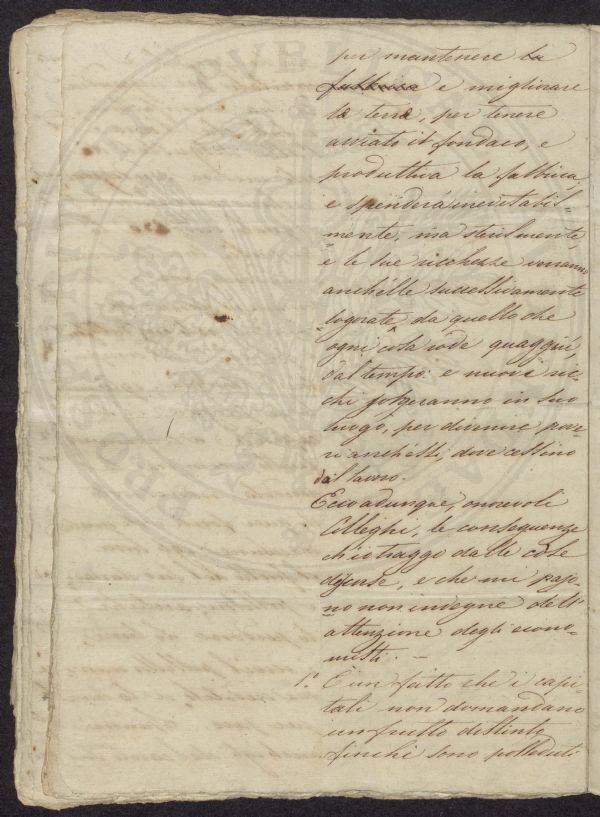 per mantenere la
fabbrica e migliorare
la terra, per tenere
avviato il fondaco, e
produttiva la fabbrica,
e spenderà inevitabil-
mente, ma sterilmente
e le sue ricchezze verranno
anch'esse successivamente
logorate da quello che
ogni cosa rode quaggiù,
dal tempo: e nuovi ric-
chi sorgeranno in suo
luogo, per divenire pove-
ri anch'essi, dove cessino
dal lavoro.
Ecco adunque, onorevoli
Colleghi, le conseguenze
ch'io traggo dalle cose
discusse, e che mi pajo-
no non indegne dell'
attenzione degli econo-
misti. –
1.° È un fatto che i capi-
tali non domandano
un frutto distinto
finchè sono posseduti